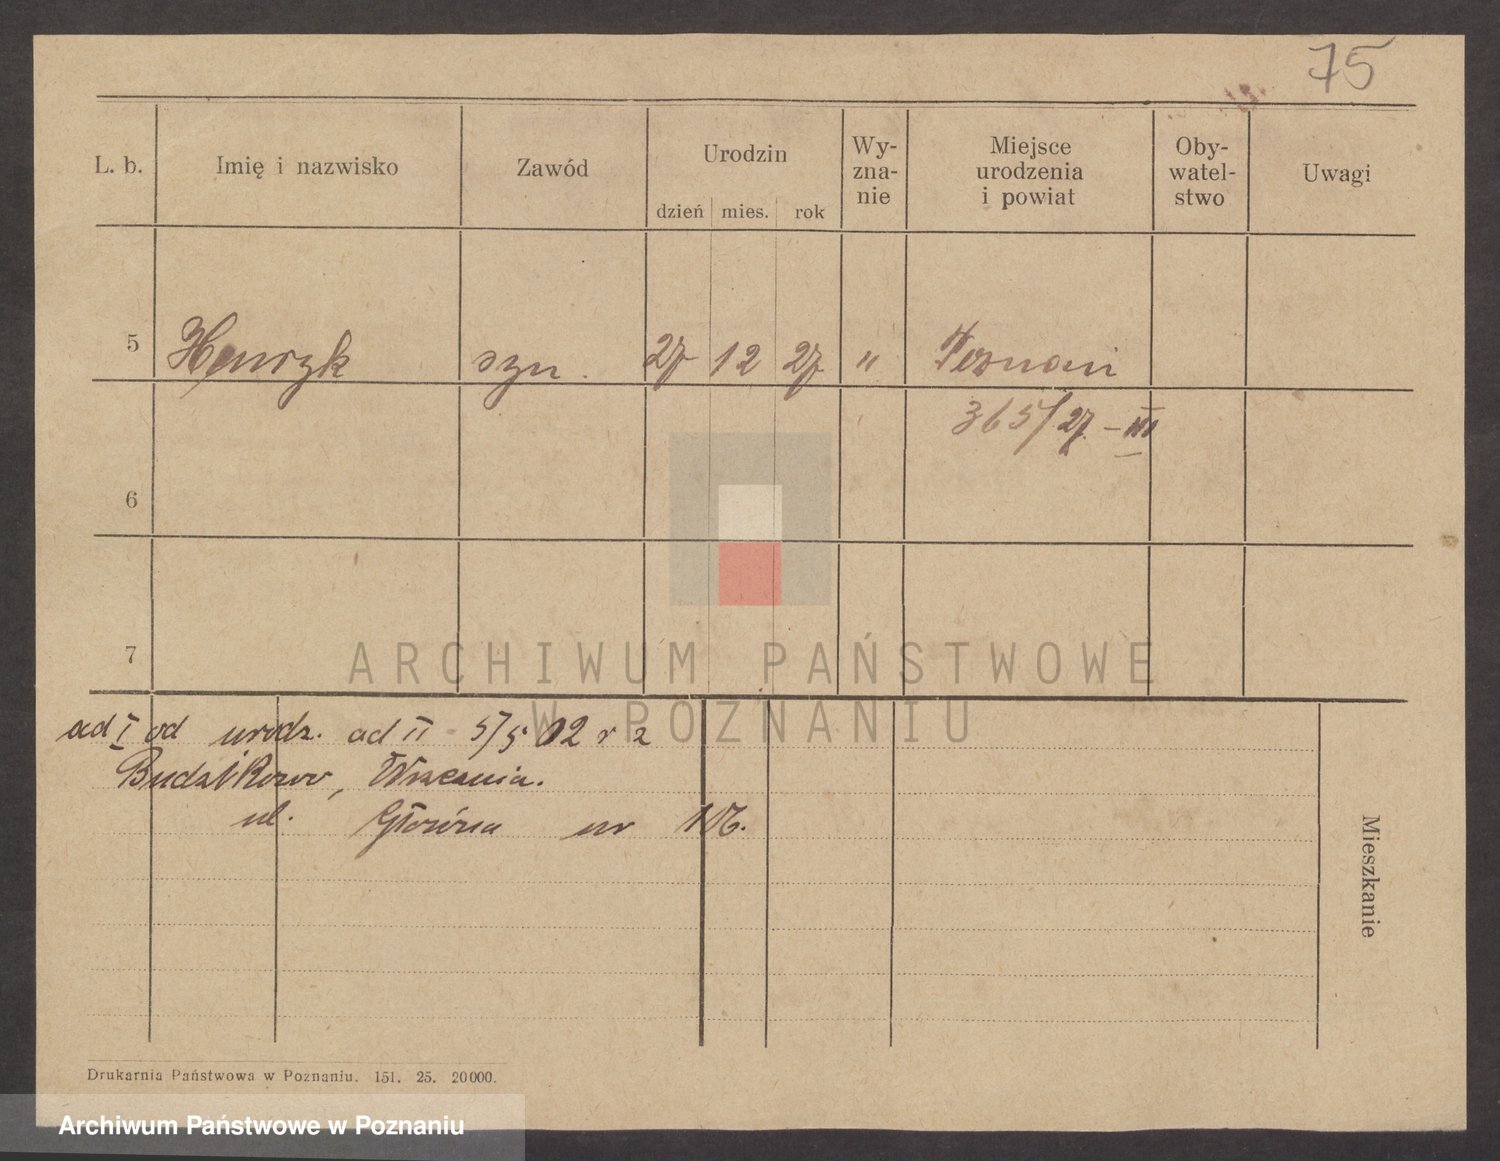 75
L. b. Imię i nazwisko Zawód Urodzin Wy-zna-nie Miejsce urodzenia i powiat Oby-watel-stwo Uwagi
dzień mies. rok
5 Henryk syn. 27 12 27 " Poznań
365/27 - III
6
7
ARCHIWUM PAŃSTWOWE
W POZNANIU
ad I od urodz. ad II 5/5 02 r z
Września.
ul. Główna nr 106.
Mieszkanie
Drukarnia Państwowa w Poznaniu. 151. 25. 20000.
Archiwum Państwowe w Poznaniu